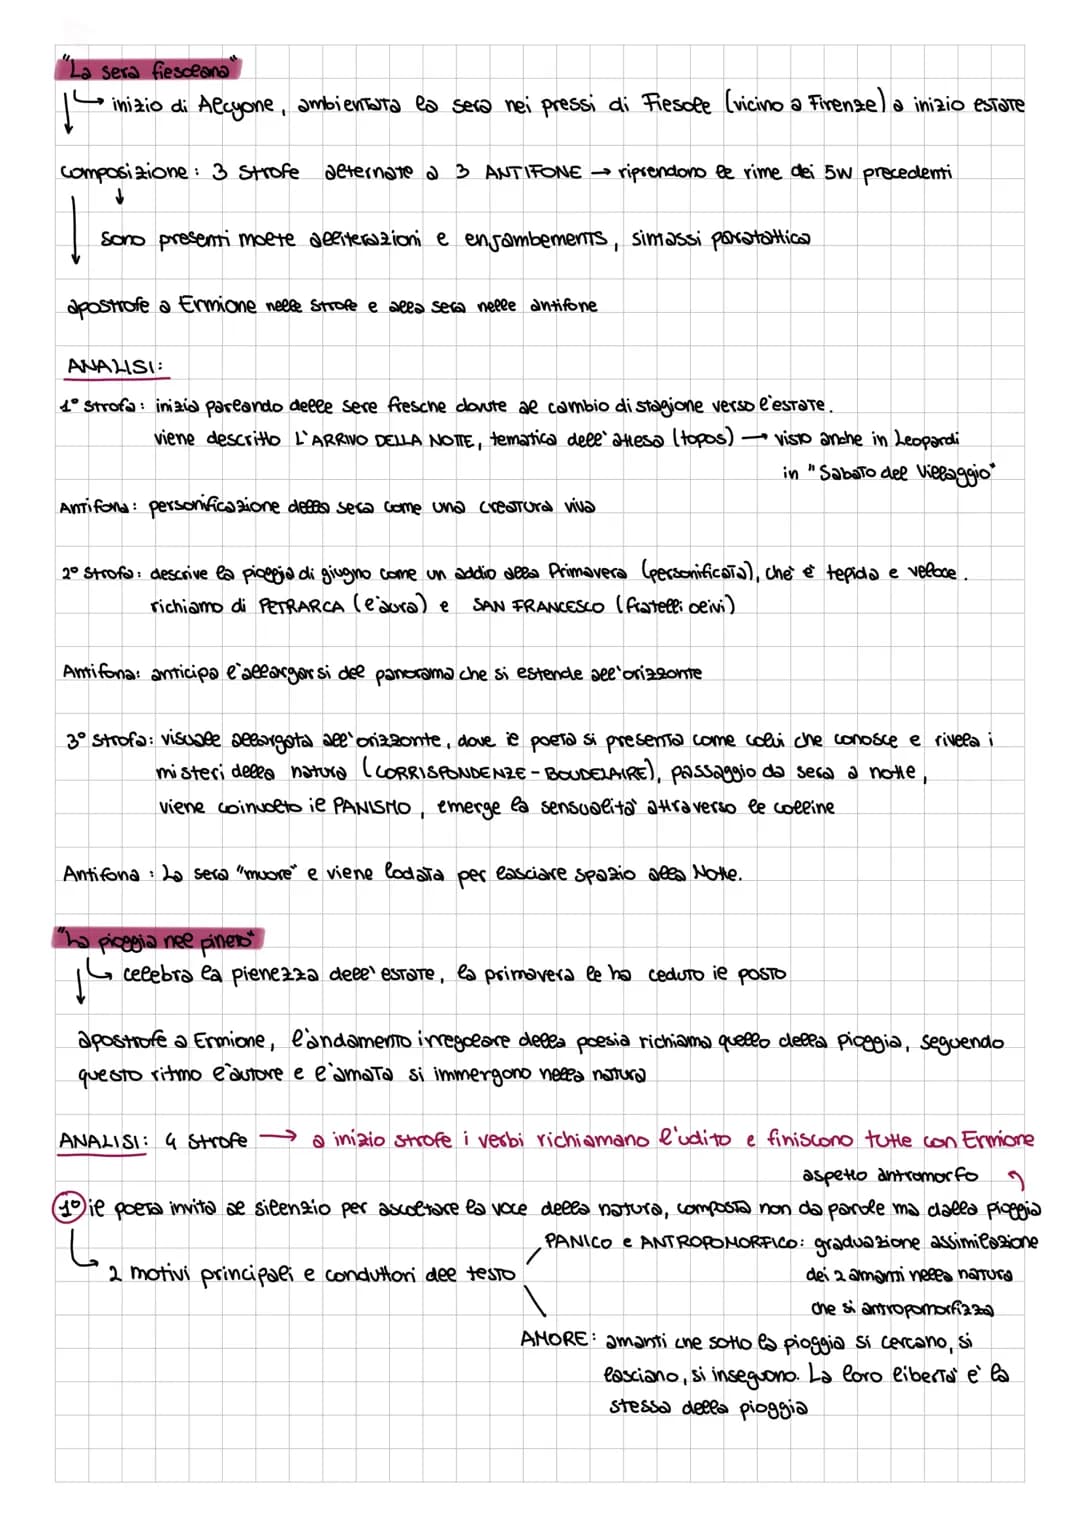 "La sera fiesolana"
inizio di Alcyone, ambientata la sera nei pressi di Fiesole (vicino a Firenze) a inizio estate
composizione: 3 strofe alternate a 3 ANTIFONE → riprendono le rime dei 5w precedenti
sono presenti molte allitterazioni e enjambements, simassi paratattica
apostrofe a Ermione nelle strofe e alla sera nelle antifone
ANALISI:
1° strofa: inizia parlando delle sere fresche dovute al cambio di stagione verso l'estate.
viene descritto L'ARRIVO DELLA NOTTE, tematica dell'attesa (topos) → visto anche in Leopardi
in "Sabato del Villaggio"
Antifona: personificazione della sera come una creatura viva
2° strofa: descrive la pioggia di giugno come un addio alla Primavera (personificata), che è tepida e veloce.
richiamo di PETRARCA (l'aura) e SAN FRANCESCO (fratelli olivi)
Antifona: anticipa l'allargarsi del panorama che si estende all'orizzonte
3° strofa: visuale allargata all'orizzonte, dove il poeta si presenta come colui che conosce e rivela i
misteri della natura (CORRISPONDENZE - BOUDELAIRE), passaggio da sera a notte,
viene coinvolto il PANISMO, emerge la sensualità attraverso le colline
Antifona: La sera "muore" e viene lodata per lasciare spazio alla Notte.
"La pioggia nel pineto"
celebra la pienezza dell'estate, la primavera le ha ceduto il posto
apostrofe a Ermione, l'andamento irregolare della poesia richiama quello della pioggia, seguendo
questo ritmo l'autore e l'amata si immergono nella natura
ANALISI: 4 strofe → a inizio strofe i verbi richiamano l'udito e finiscono tutte con Ermione
aspetto antromorfo
1° il poeta invita al silenzio per ascoltare la voce della natura, composta non da parole ma dalla pioggia
PANICO e ANTROPOMORFICO: graduazione assimilazione
2 motivi principali e conduttori del testo
dei 2 amanti nella natura
che si antropomorfizza
AMORE: amanti che sotto la pioggia si cercano, si
lasciano, si inseguono. La loro libertà è la
stessa della pioggia